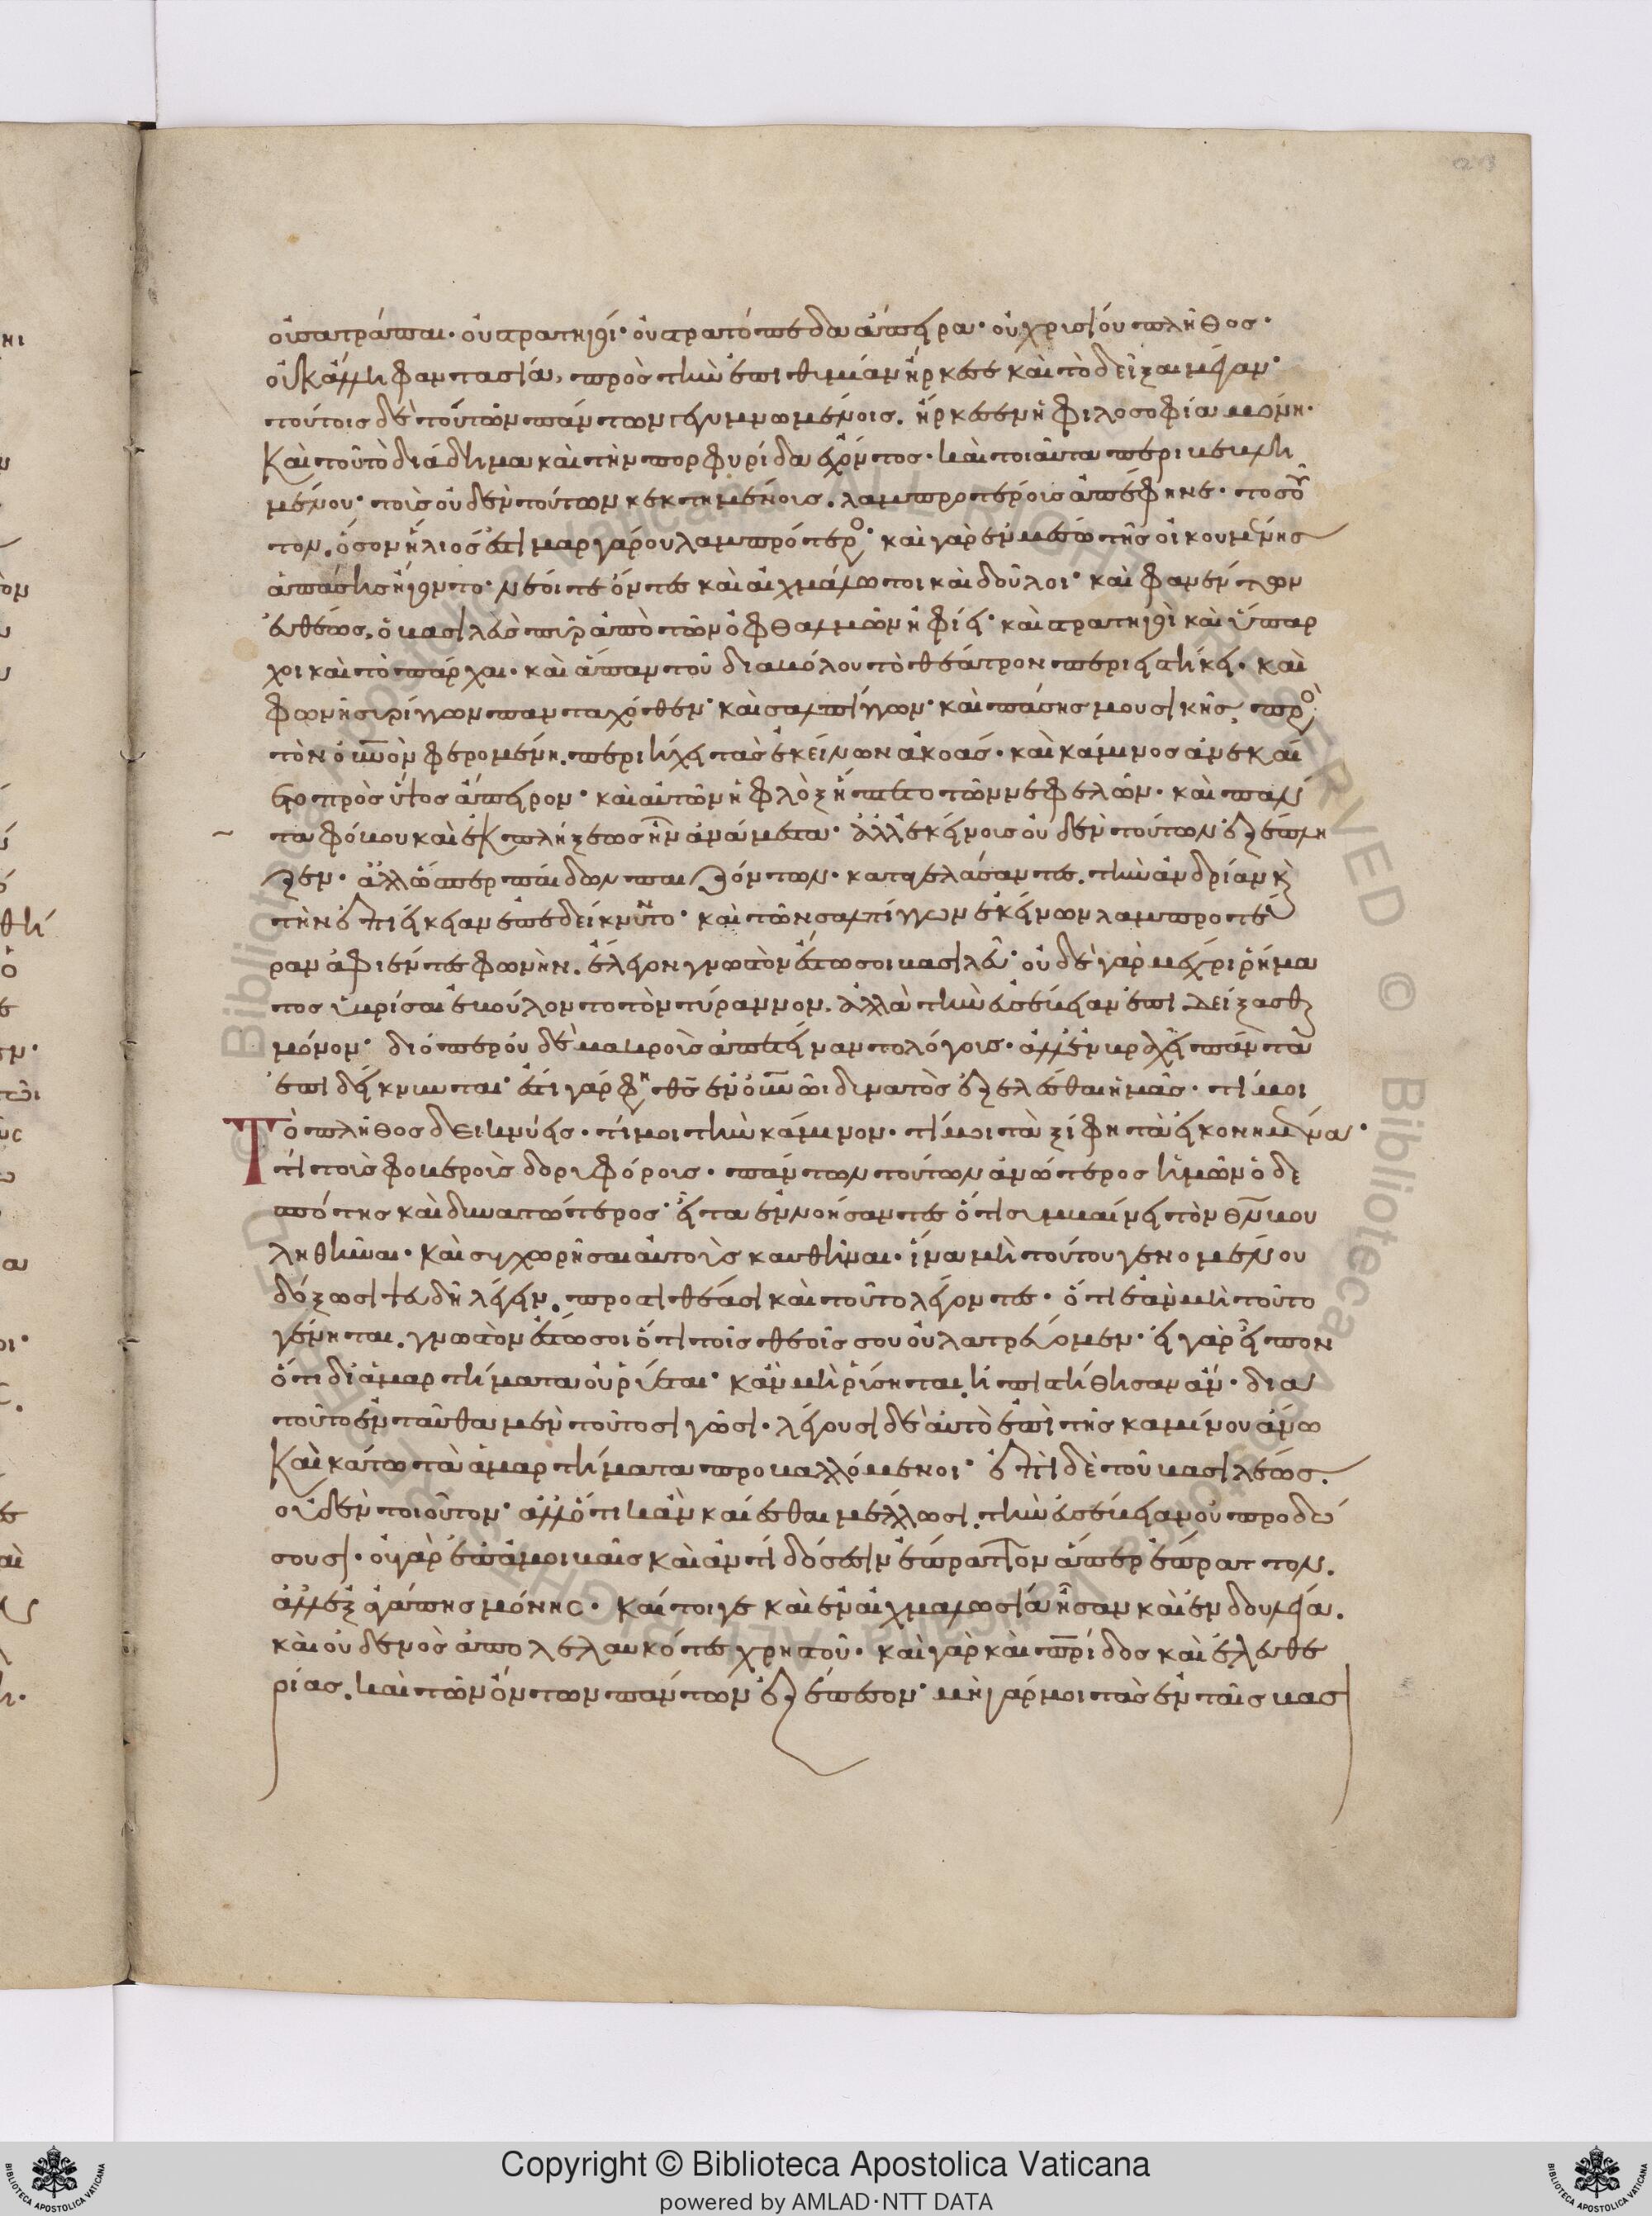 οἱ σατράπαι· οὐ στρατηγοί· οὐ στρατόπεδα ἄπειρα· οὐ χρυσίου πλῆθος·
οὐκ ἄλλη φαντασία, πρὸς τὴν ἐπιθυμίαν ἤρκεσε καὶ τὸ δεῖξαι μέγαν·
τούτοις δὲ τούτων πάντων γεγυμνωμένοις. ἤρκεσεν ἡ φιλοσοφία μόνη·
Καὶ τοῦ τὸ διάδημα καὶ τὴν πορφυρίδα ἔχοντος· καὶ τοιαῦτα περιβεβλη
μένου· τοὺς οὐδὲν τούτων κεκτημένοις. λαμπροτέροις ἀπέφηνε· τοσοῦ
τον. ὅσον ἥλιός ἐστι μαργάρου λαμπρότερος· καὶ γὰρ ἐν μέσῳ τῆς οἰκουμένης
ἁπάσης ἤγοντο· νέοι τε ὄντες καὶ αἰχμάλωτοι καὶ δοῦλοι· καὶ φανέντων
εὐθέως, ὁ βασιλεὺς πῦρ ἀπὸ τῶν ὀφθαλμῶν ἠφίει· καὶ στρατηγοὶ καὶ ὕπαρ
χοι καὶ τοπάρχαι· καὶ ἅπαν τοῦ διαβόλου τὸ θέατρον περιειστήκει· καὶ
φωνὴ συρίγγων πανταχόθεν· καὶ σαλπίγγων· καὶ πάσης μουσικῆς, πρὸς
τὸν οὐνὸν φερομένη. περιήχει τὰς ἐκείνων ἀκοάς· καὶ κάμινος ἀνεκαί
ετο πρὸς ὕψος ἄπειρον· καὶ αὐτῶν ἡ φλὸξ ἥπτετο τῶν νεφελῶν· καὶ πάν
τα φόβου καὶ ἐκπλήξεως ἦν ἀνάμεστα· ἀλλ' ἐκείνους οὐδὲν τούτων ἐξέπλη
ξεν· ἀλλ' ὥσπερ παίδων παιζόντων· καταγελάσαντες. τὴν ἀνδρίαν καὶ
τὴν ἐπιείκειαν ἐπεδείκνυντο· καὶ τῶν σαλπίγγων ἐκείνων λαμπροτέ
ραν ἀφιέντες φωνὴν. ἔλεγον γνωστὸν ἔστω σοι βασιλεῦ· οὐδὲ γὰρ μέχρι ῥήμα
τος ὑβρίσαι ἐβούλοντο τὸν τύραννον. ἀλλὰ τὴν εὐσέβειαν ἐπιδείξασθαι
μόνον· διόπερ οὐδὲ μακροῖς ἀπέτειναν τοὺς λόγους· ἀλλ' ἐν βραχεῖ πάντα
ἐπιδείκνυνται· ἔστι γὰρ φησι θεὸς ἐν οὐνῷ δυνατὸς ἐξελέσθαι ἡμᾶς· τί μοι
Τὸ πλῆθος δεικνύεις· τί μοι τὴν κάμινον· τί μοι τὰ ξίφη τὰ ἠκονημένα·
τί τοὺς φοβεροὺς δορυφόρους· πάντων τούτων ἀνώτερος ἡμῶν ὁ δε
σπότης καὶ δυνατώτερος· εἶτα ἐννοήσαντες ὅτι συμβαίνει τὸν θν βου
ληθῆναι· Καὶ συγχωρῆσαι αὐτοὺς καυθῆναι· ἵνα μὴ τούτου γενομένου
δόξωσι ψευδῆ λέγειν. προστιθέασι καὶ τοῦτο λέγοντες· ὅτι ἐὰν μὴ τοῦτο
γένηται. γνωστὸν ἔστω σοι ὅτι τοῖς θεοῖς σου οὐ λατρεύομεν· εἰ γὰρ εἶπον
ὅτι δι' ἁμαρτήματα οὐ ῥύεται· κἂν μὴ ῥύσηται, ἠπιστήθησαν ἄν· δια
τοῦτο ἐνταῦθα μὲν τοῦτο σιγῶσι· λέγουσι δὲ αὐτὸ ἐπὶ τῆς καμίνου ἄνω
Καὶ κάτω τὰ ἁμαρτήματα προβαλλόμενοι· ἐπὶ δὲ τοῦ βασιλέως.
οὐδὲν τοιοῦτον· ἀλλ' ὅτι κἂν καίεσθαι μέλλωσι. τὴν εὐσέβειαν οὐ προδώ
σουσι· οὐ γὰρ ἐπ' ἀμοιβαῖς καὶ ἀντιδόσεσιν ἔπραττον ἅπερ ἔπραττον.
ἀλλ' ἐξ ἀγάπης μόνης· Καίτοιγε καὶ ἐν αἰχμαλωσίᾳ ἦσαν καὶ ἐν δουλείᾳ.
καὶ οὐδενὸς ἀπολελαυκότες χρηστοῦ· καὶ γὰρ καὶ πρίδος καὶ ἐλευθε
ρίας. καὶ τῶν ὄντων πάντων ἐξέπεσον· μὴ γάρ μοι τὰς ἐν ταῖς βασι
Copyright © Biblioteca Apostolica Vaticana
powered by AMLAD·NTT DATA